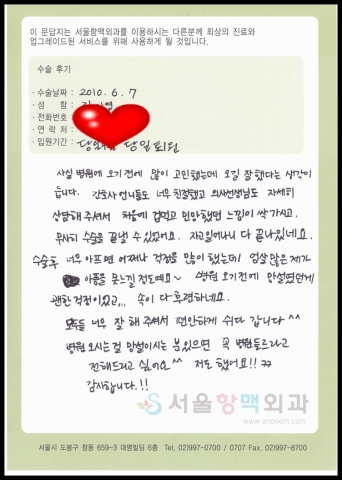 이 문답지는 서울항맥외과를 이용하시는 다른분께 최상의 진료와
업그레이드된 서비스를 위해 사용하게 될 것입니다.
수술 후기
· 수술날짜 : 2010. 6. 7
· 성 함 :
· 전화번호 :
· 연 락 처 :
· 입원기간 : 당일 퇴원
사실 병원에 오기전에 많이 고민했는데 오길 잘했다는 생각이
듭니다. 간호사 언니들도 너무 친절했고 의사선생님도 자세히
상담해 주셔서 처음에 겁먹고 민망했던 느낌이 싹 가시고,
무사히 수술을 끝낼 수 있었어요. 자고일어나니 다 끝나있네요.
수술후 너무 아프면 어쩌나 걱정을 많이 했는데 엄살많은 제가
아픔을 못느낄 정도예요~ 병원 오기전에 망설였던게
괜한 걱정이었고,,, 속이 다 후련하네요.
모두들 너무 잘 해 주셔서 편안하게 쉬다 갑니다 ^^
병원 오시는걸 망설이시는 분있으면 꼭 병원들르라고
전해드리고 싶어요^^ 저도 했어요!! ㅋㅋ
감사합니다.!!
서울항맥외과
www.anovein.com
서울시 도봉구 창동 659-3 대명빌딩 6층 Tel. 02)997-0700 / 0707 Fax. 02)997-8700